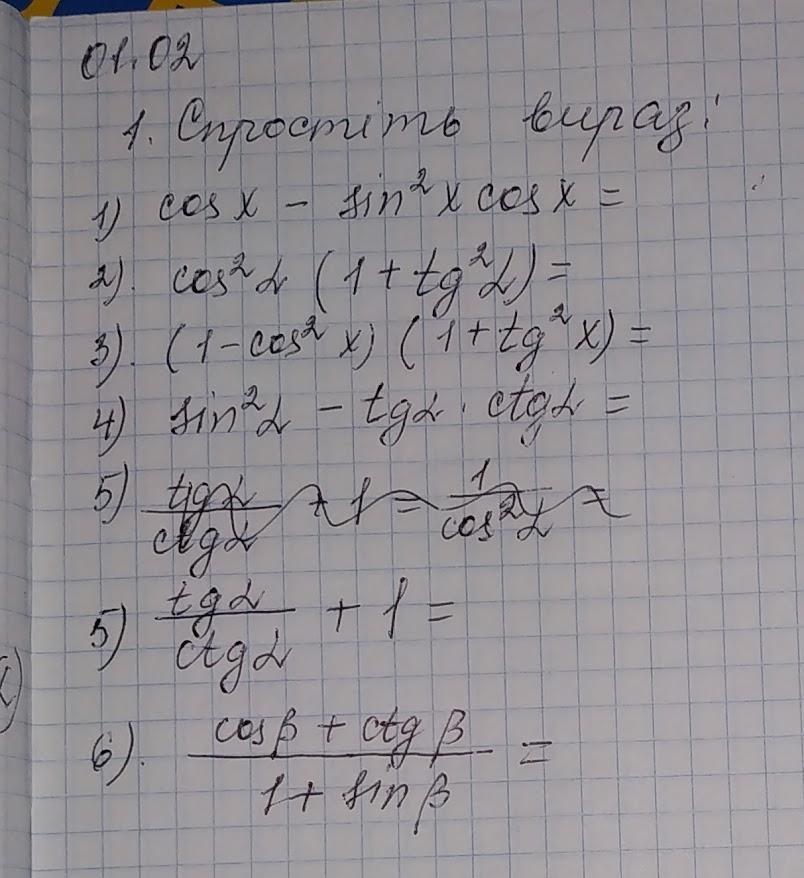 01.02
1. Спростіть вираз:
1) cos x - sin²x cos x =
2). cos²α (1 + tg²α) =
3). (1 - cos²x) (1 + tg²x) =
4) sin²α - tgα · ctgα =
5) tgα/ctgα + 1 = 1/cos²α =
5) tgα/ctgα + 1 =
6). cosβ + ctgβ / 1 + sinβ =